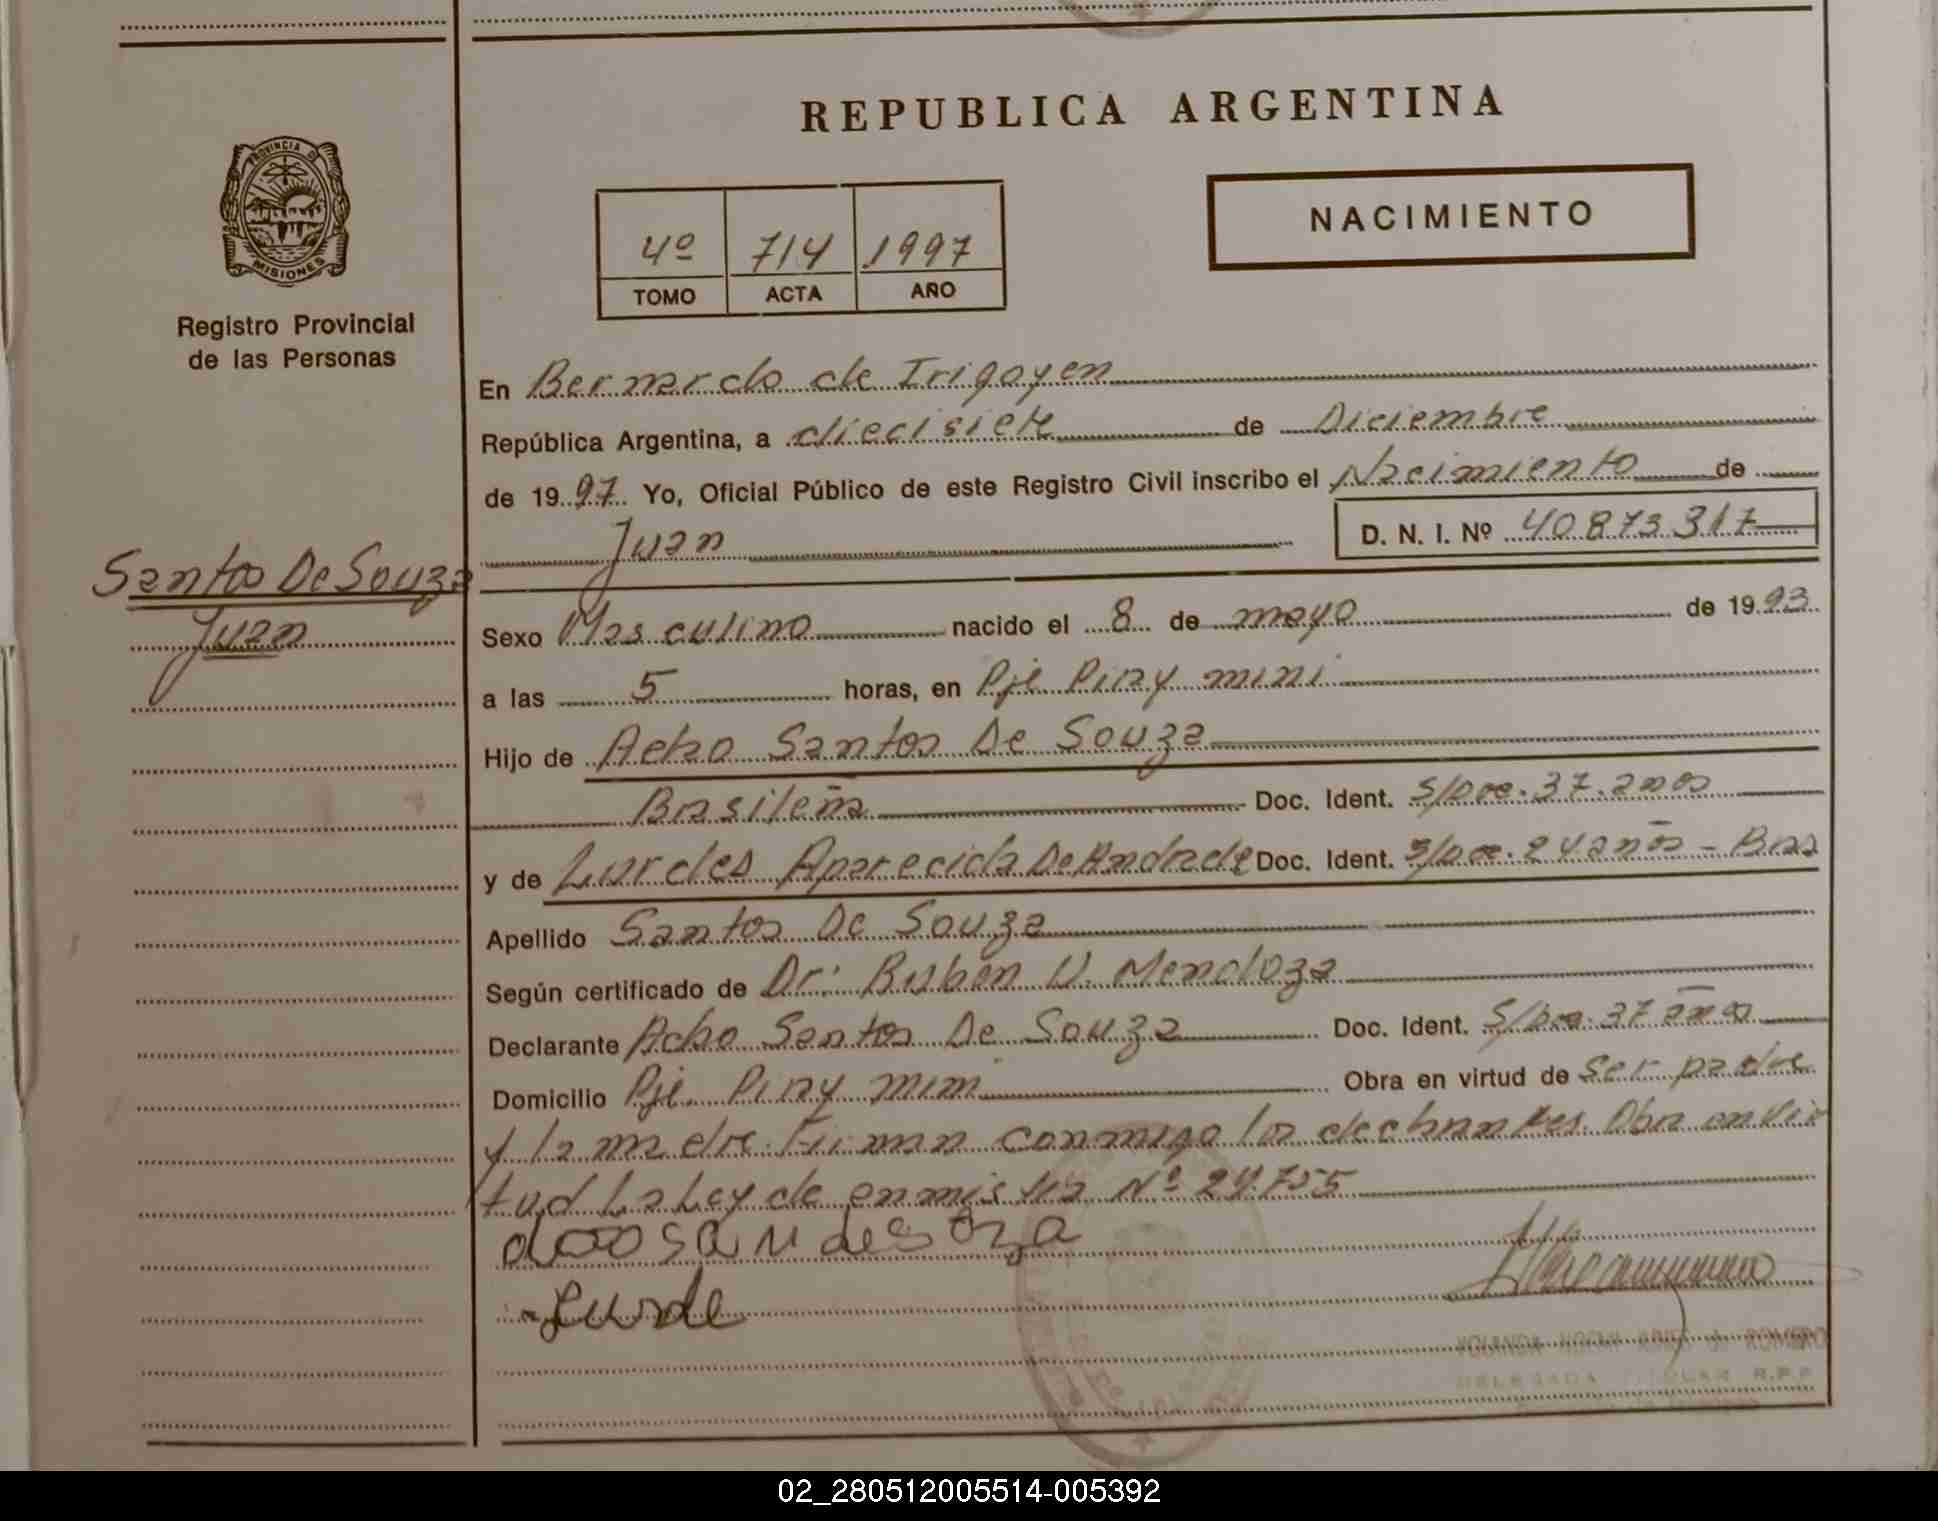 REPUBLICA ARGENTINA
PROVINCIA D
MISIONES
Registro Provincial
de las Personas
4º 714 1997
TOMO ACTA AÑO
NACIMIENTO
En Bernardo de Irigoyen
República Argentina, a diecisiete de Diciembre
de 19 97 Yo, Oficial Público de este Registro Civil inscribo el Nacimiento de
Juan D. N. I. Nº 40873317
Santos De Souza
Juan
Sexo Masculino nacido el 8 de mayo de 19 93
a las 5 horas, en Pje Piray mini
Hijo de Santos De Souza
Brasileña Doc. Ident. S/Doc. 37 años
y de Lurdes Aparecida De Andrade Doc. Ident. S/Doc. 24 años - Bras
Apellido Santos De Souza
Según certificado de Dr: Ruben V. Mendoza
Declarante Santos De Souza Doc. Ident. S/Doc. 37 años
Domicilio Pje. Piray mini Obra en virtud de ser padre
y la madre. Firman conmigo los declarantes. Obra en vir
tud La Ley de Nº 24.755
Lurde
DELEGADA TITULAR R.P.P.
02_280512005514-005392